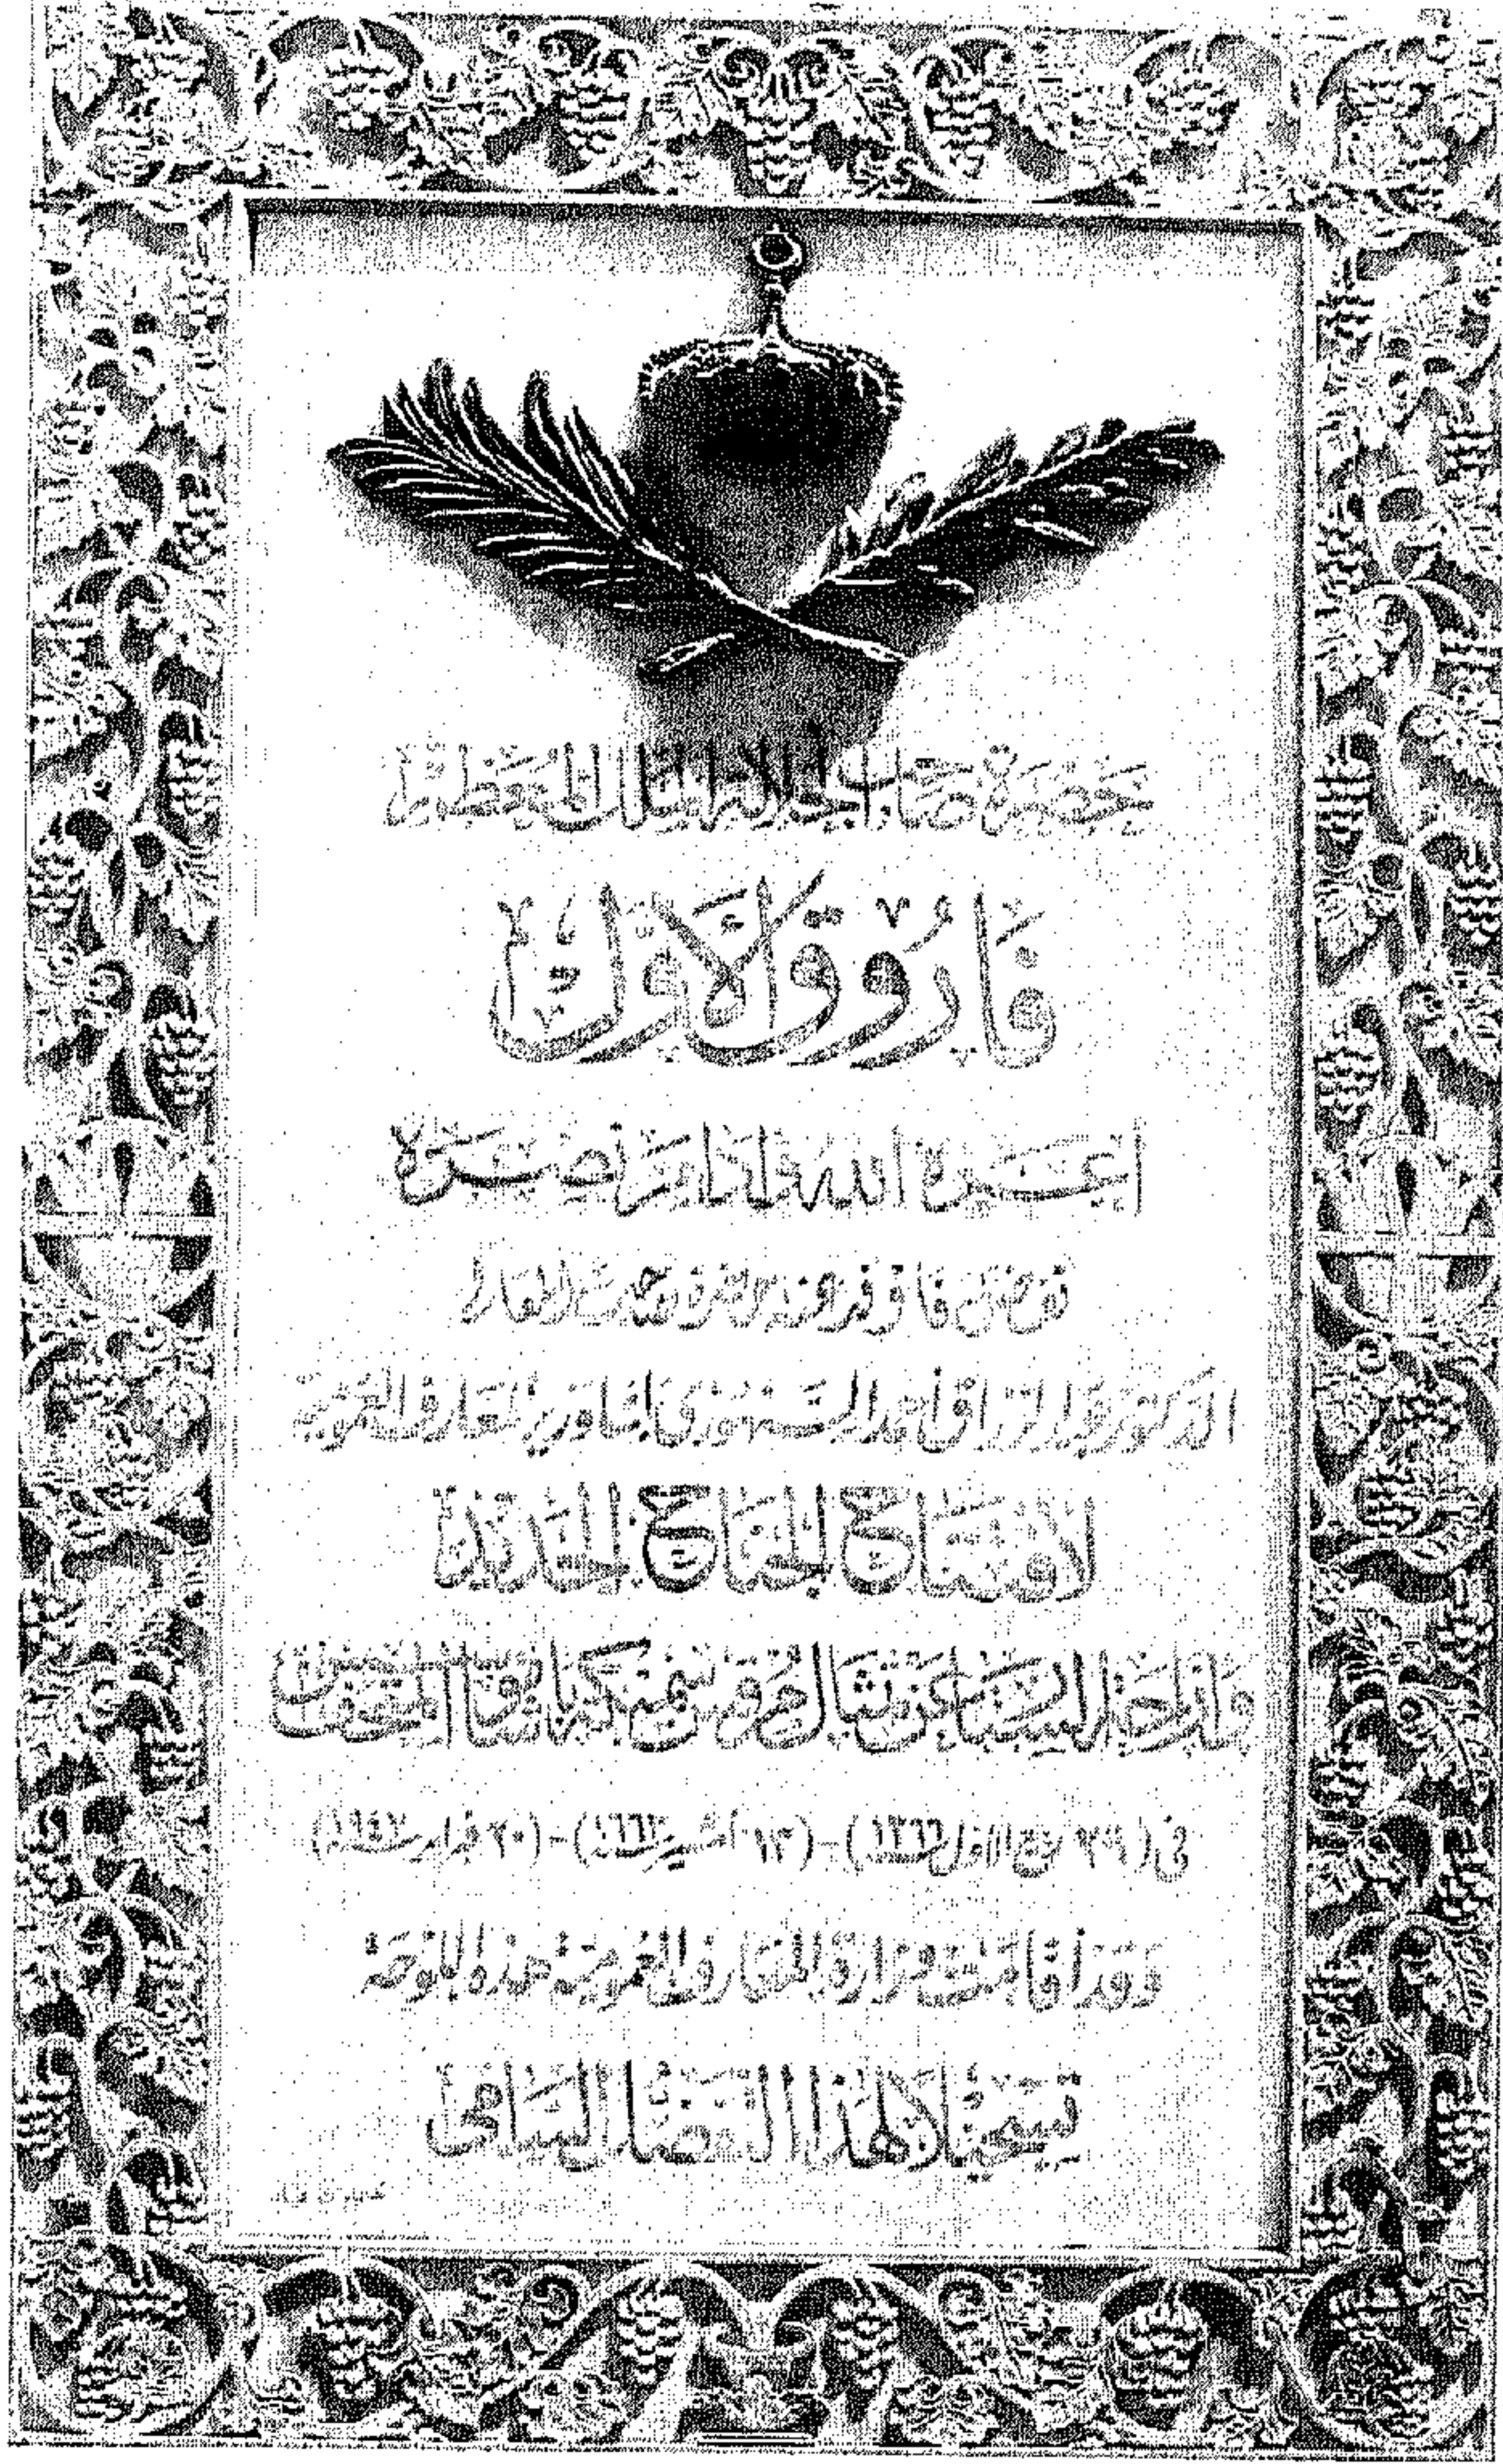 حضرة صاحب الجلالة الملك المعظم
فاروق الأول
أعزه الله نصره
تفضل فأوفد حضرة صاحب المعالى
الدكتور عبد الرزاق أحمد السنهورى باشا وزير المعارف العمومية
لافتتاح الجناح الجديد
وإزاحة الستار عن تمثال مرقس سميكة باشا المتحف
فى (٢٩ ربيع الأول سنة ١٣٦٦) - (١٣ أمشير سنة ١٦٦٣) - (٢٠ فبراير سنة ١٩٤٧)
وقد أقامت وزارة المعارف العمومية هذه اللوحة
تسجيلا لهذا التفضل السامى